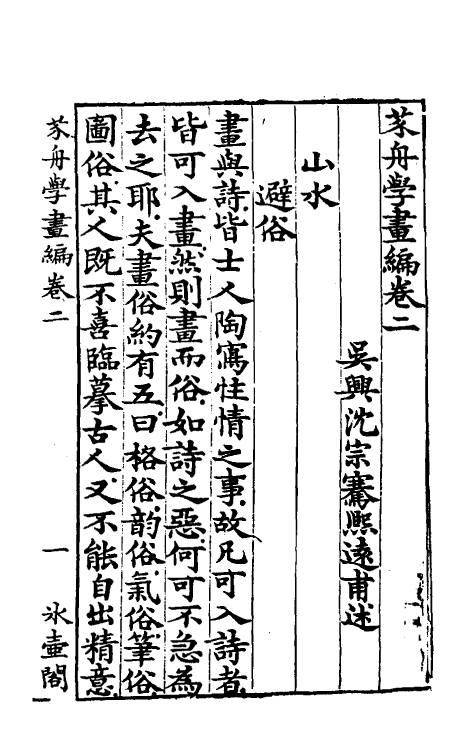 芥舟學畫編卷二
吳興沈宗騫熙遠甫述
山水
避俗
畫與詩皆士人陶寫性情之事故凡可入詩者
皆可入畫然則畫而俗如詩之惡何可不急為
去之耶夫畫俗約有五曰格俗韵俗氣俗筆俗
圖俗其人既不喜臨摹古人又不能自出精意
芥舟學畫編卷二
一
冰壺閣